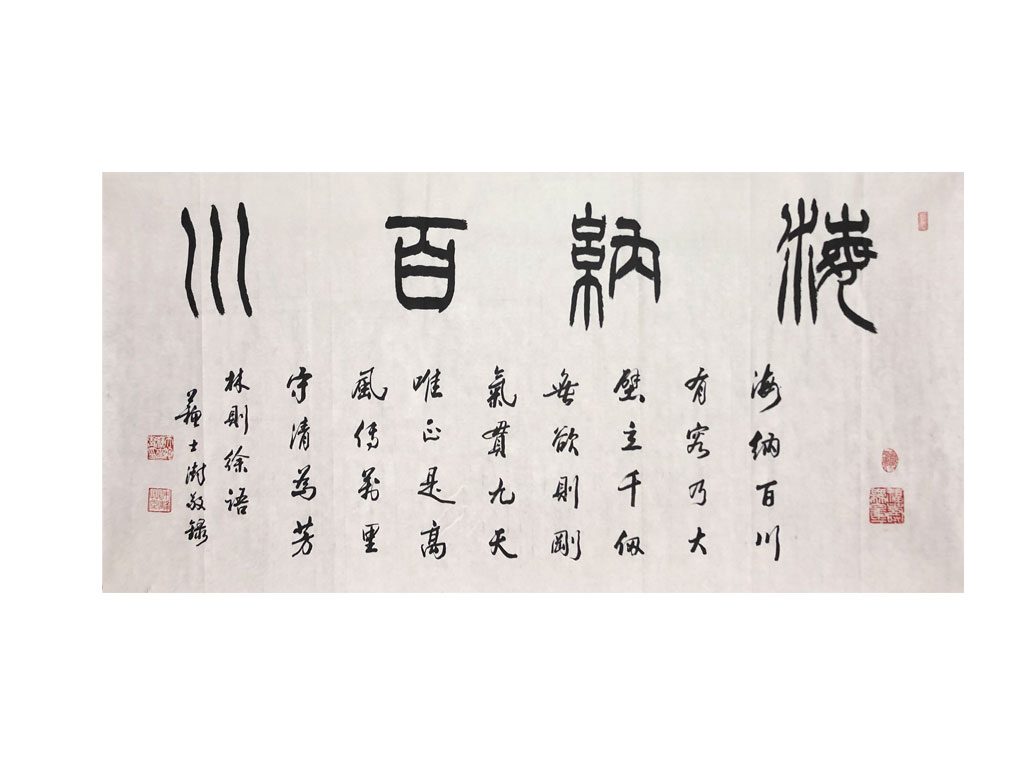 海納百川
海纳百川
有容乃大
壁立千仞
無欲則剛
氣貫九天
唯正是高
風傳萬里
守清為芳
林則徐語
蘇士澍敬錄